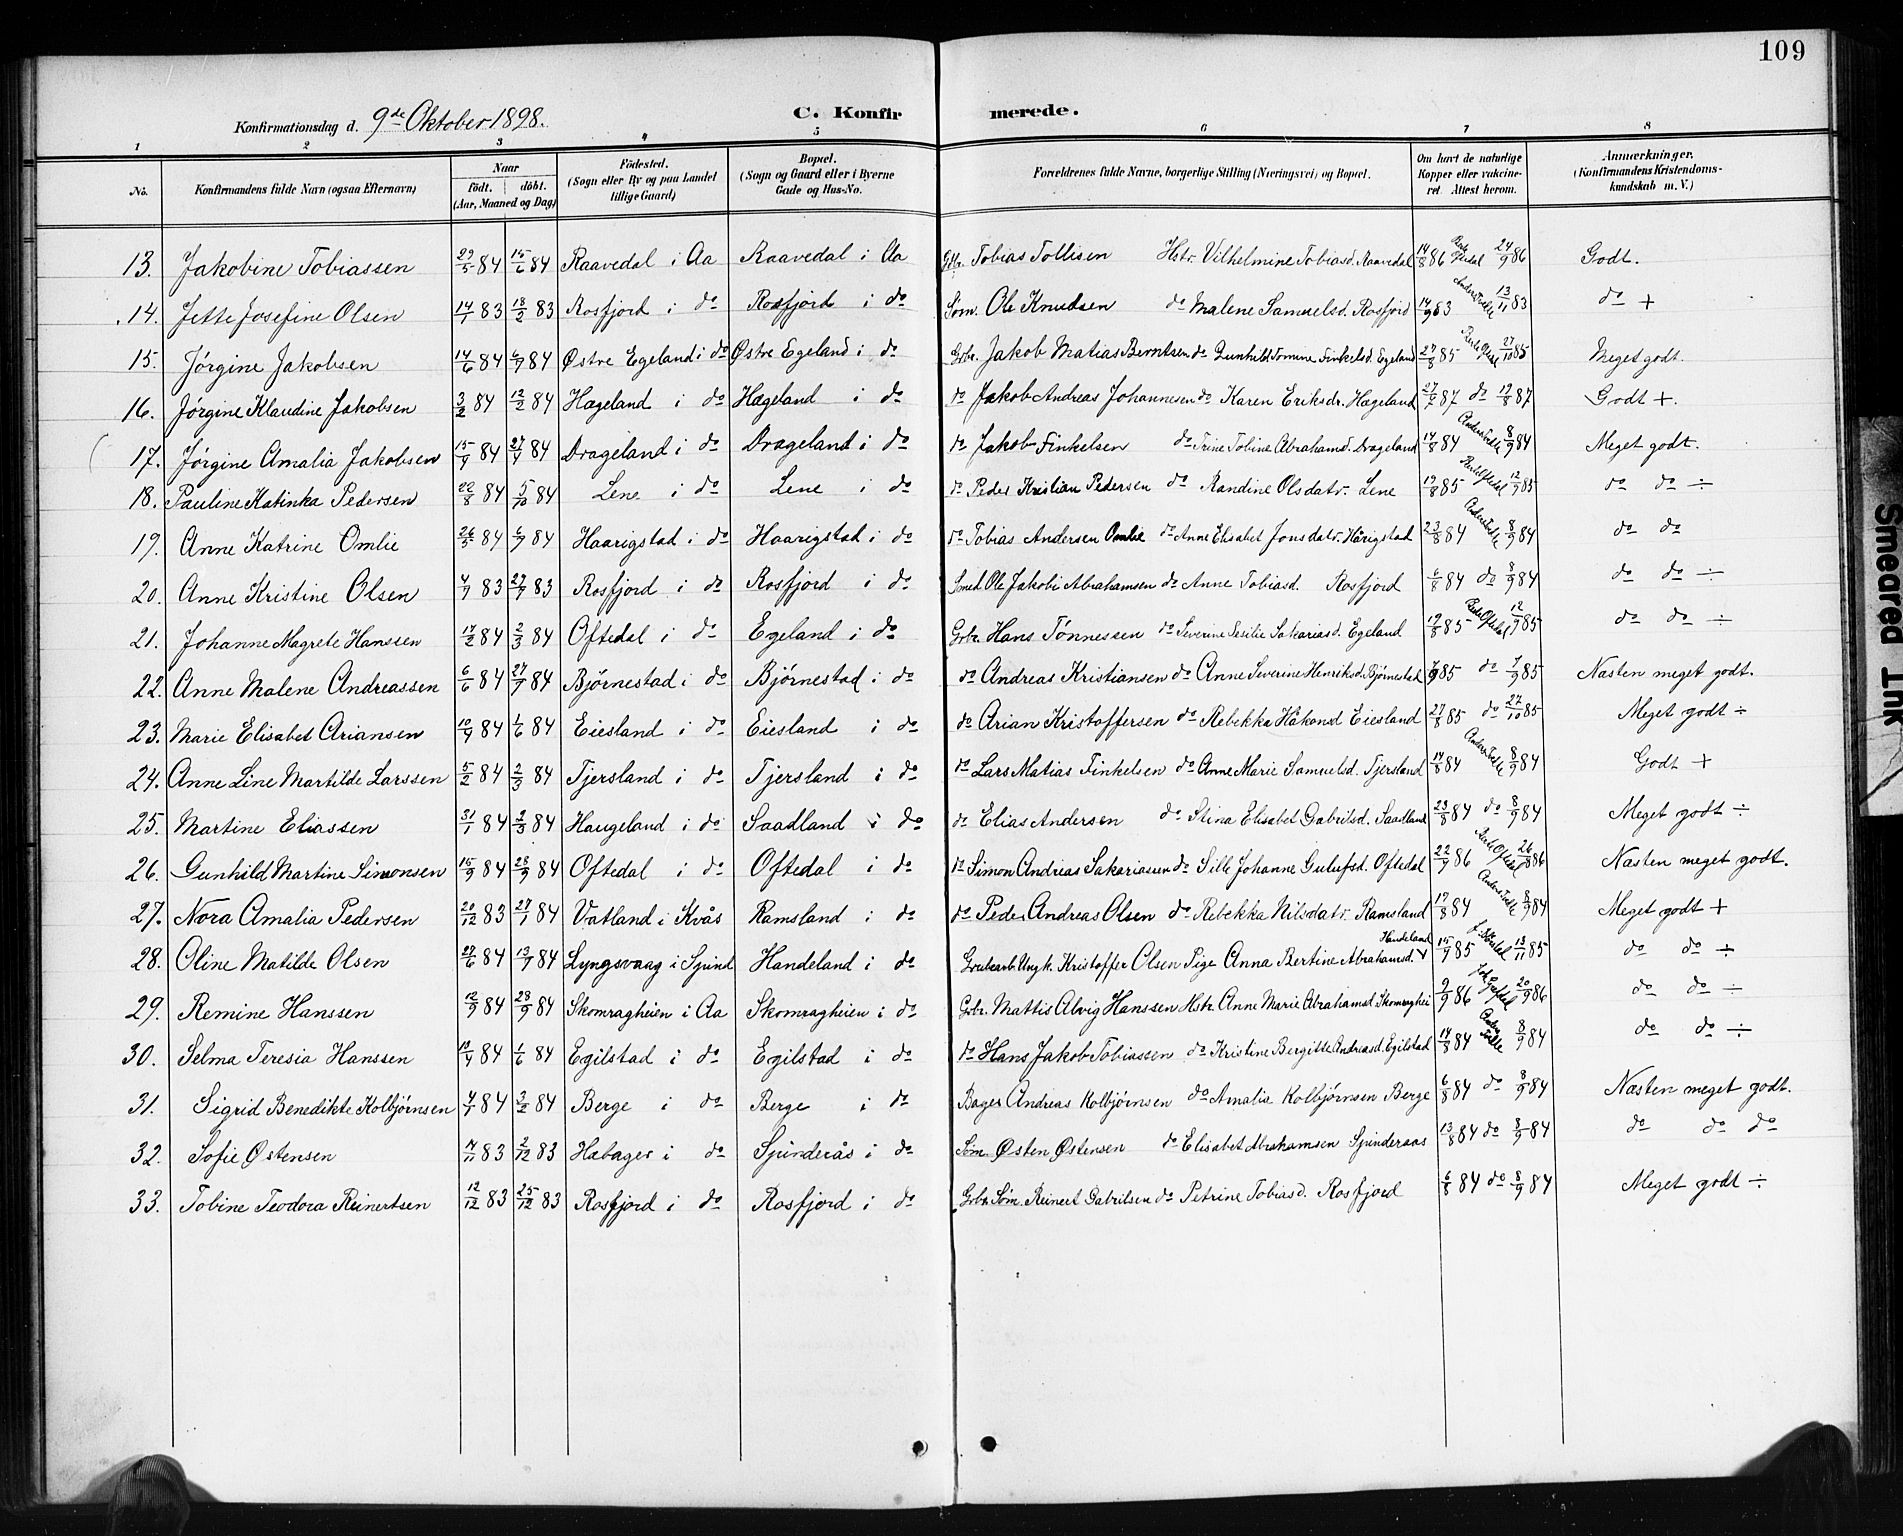 109
Konfirmationsdag d. 9de Oktober 1898. C. Konfirmerede.
1 2 3 4 5 6 7 8
No. Konfirmandens fulde Navn (ogsaa Efternavn) Naar födt. döbt. (Aar, Maaned og Dag) Födested. (Sogn eller By og paa Landet tillige Gaard) Bopæl. (Sogn og Gaard eller i Byerne Gade og Hus-No. Forældrenes fulde Navne, borgerlige Stilling (Næringsvei) og Bopæl. Om havt de naturlige Kopper eller vaccineret. Attest herom. Anmærkninger. (Konfirmandens Kristendomskundskab m. V.)
13. Jakobine Tobiassen 29/5 84 15/6 84 Raavedal i Aa Raavedal i Aa Tobias Tollisen Hstr. Vilhelmine Tobiasd. Raavedal 14/8 86 24/9 86 Godt.
14. Jette Josefine Olsen 14/1 83 18/2 83 Rosfjord i do Rosfjord i do Söm. Ole Knudsen do Malene Samuelsd. Rosfjord 14/9 83 13/11 83 do +
15. Jørgine Jakobsen 14/6 84 6/7 84 Østre Egeland i do Østre Egeland i do Grbr. Jakob Matias Berntsen do Gunhild Tomine Finkelsd. Egeland 27/8 85 27/10 85 Meget godt.
16. Jørgine Klaudine Jakobsen 3/2 84 12/2 84 Hægeland i do Hægeland i do do Jakob Andreas Johannesen do Karen Eriksdr. Hægeland 27/7 87 do 19/8 87 Godt +.
17. Jørgine Amalia Jakobsen 15/4 84 27/4 84 Drageland i do Drageland i do do Jakob Finkelsen do Trine Tobine Abrahamsd. Drageland 14/8 84 8/9 84 Meget godt.
18. Pauline Katinka Pedersen 22/8 84 5/10 84 Lene i do Lene i do do Peder Kristian Pedersen do Randine Olsdatr. Lene 19/8 85 12/9 85 do do ÷
19. Anne Katrine Omlie 26/5 84 6/7 84 Haarigstad i do Haarigstad i do do Tobias Andersen Omlie do Anne Elisabet Jonsdatr. Hårigstad 23/8 84 8/9 84 do do
20. Anne Kristine Olsen 4/7 83 27/7 83 Rosfjord i do Rosfjord i do Smed Ole Jakobi Abrahamsen do Anne Tobiasd. Rosfjord 6/8 84 do 8/9 84 do do ÷
21. Johanne Magrete Hanssen 17/2 84 2/3 84 Oftedal i do Egeland i do Grbr. Hans Tönnessen do Severine Sesilie Sakariasd. Egeland 19/8 85 12/9 85 do do ÷
22. Anne Malene Andreassen 6/6 84 27/7 84 Bjørnestad i do Bjørnestad i do do Andreas Kristiansen do Anne Severine Henriksd. Bjørnestad 85 do 85 Næsten meget godt.
23. Marie Elisabet Ariansen 84 1/6 84 Eiesland i do Eiesland i do do Arian Kristoffersen do Rebekka Håkonsd Eiesland 27/8 85 do 27/10 85 Meget godt ÷
24. Anne Line Martilde Larssen 5/2 84 2/3 84 Tjersland i do Tjersland i do do Lars Matias Finkelsen do Anne Marie Samuelsd. Tjersland 14/8 84 8/9 84 Godt +
25. Martine Eliassen 31/1 84 2/3 84 Haugeland i do Saadland i do do Elias Andersen do Stina Elisabet Gabrilsd. Saadland 23/8 84 do 8/9 84 Meget godt ÷
26. Gunhild Martine Simonsen 15/9 84 28/9 84 Oftedal i do Oftedal i do do Simon Andreas Sakariassen do Sille Johanne Gulufsd. Oftedal 22/9 86 86 Næsten meget godt.
27. Nora Amalia Pedersen 20/12 83 27/1 84 Vatland i Kvås Ramsland i do do Peder Andreas Olsen do Rebekka Nilsdatr. Ramsland 19/8 84 8/9 84 Meget godt +
28. Oline Matilde Olsen 27/6 84 13/7 84 Lyngsvaag i Spind Handeland i do Ungk. Kristoffer Olsen Pige Anna Bertine Abrahamsd. Handeland 15/9 85 13/11 85 do do ÷
29. Remine Hanssen 12/9 84 28/9 84 Skomragheien i Aa Skomragheien i do Grbr. Mattis Alvig Hanssen Hstr. Anne Marie Abrahamsd Skomraghei 9/9 86 20/9 86 do do ÷
30. Selma Teresia Hanssen 84 1/6 84 Egilstad i do Egilstad i do do Hans Jakob Tobiassen do Kristine Bergitte Andreasd. Egilstad 14/8 84 8/9 84 do do ÷
31. Sigrid Benedikte Kolbjörnsen 4/1 84 3/2 84 Berge i do Berge i do Bager Andreas Kolbjörnsen do Amalia Kolbjörnsen Berge 6/8 84 do 8/9 84 Næsten meget godt.
32. Sofie Østensen 4/11 83 2/12 83 Habager i do Spinderås i do Söm. Østen Østensen do Elisabet Abrahamsen Spinderaas 13/8 84 do 8/9 84 do do do
33. Tobine Teodora Reinertsen 12/12 83 25/12 83 Rosfjord i do Rosfjord i do Grbr. Söm. Reinert Gabrilsen do Petrine Tobiasd. Rosfjord 6/8 84 do 8/9 84 Meget godt ÷
Smeared Ink